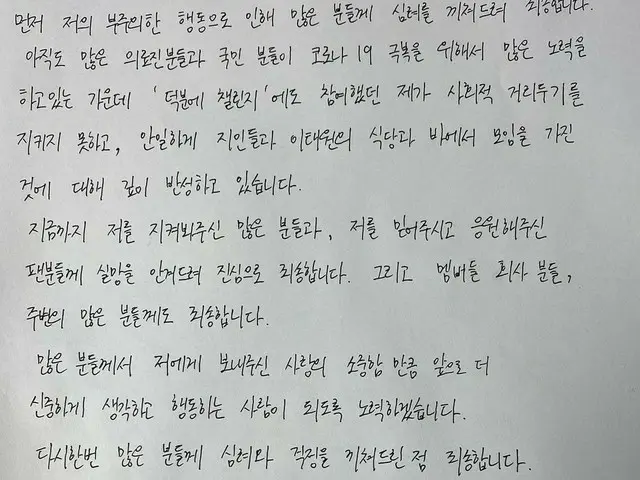 먼저 저의 부주의한 행동으로 인해 많은 분들께 심려를 끼쳐드려 죄송합니다.
아직도 많은 의료진분들과 국민 분들이 코로나 19 극복을 위해서 많은 노력을
하고있는 가운데 '덕분에 챌린지'에도 참여했던 제가 사회적 거리두기를
지키지 못하고, 안일하게 지인들과 이태원의 식당과 바에서 모임을 가진
것에 대해 깊이 반성하고 있습니다.
지금까지 저를 지켜봐주신 많은 분들과, 저를 믿어주시고 응원해주신
팬분들께 실망을 안겨드려 진심으로 죄송합니다. 그리고 멤버들 회사 분들,
주변의 많은 분들께도 죄송합니다.
많은 분들께서 저에게 보내주신 사랑의 소중함 만큼 앞으로 더
신중하게 생각하고 행동하는 사람이 되도록 노력하겠습니다.
다시한번 많은 분들께 심려와 걱정을 끼쳐드린 점 죄송합니다.